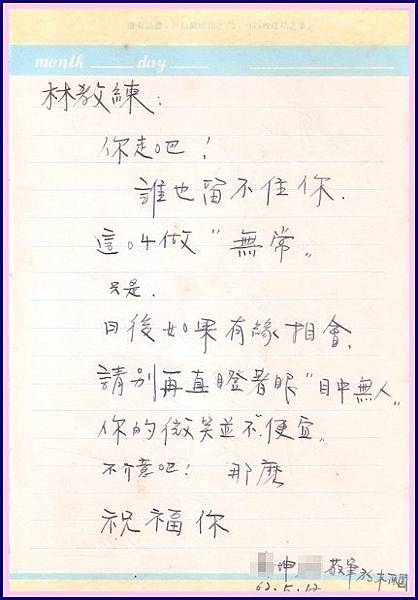 month day
林教練：
你走吧！
誰也留不住你.
這叫做"無常"。
只是.
日後如果有緣相會,
請別再直瞪著眼"目中無人"。
你的微笑並不"便宜"。
不介意吧！ 那麼
祝福你
坤 敬筆於
62.5.12